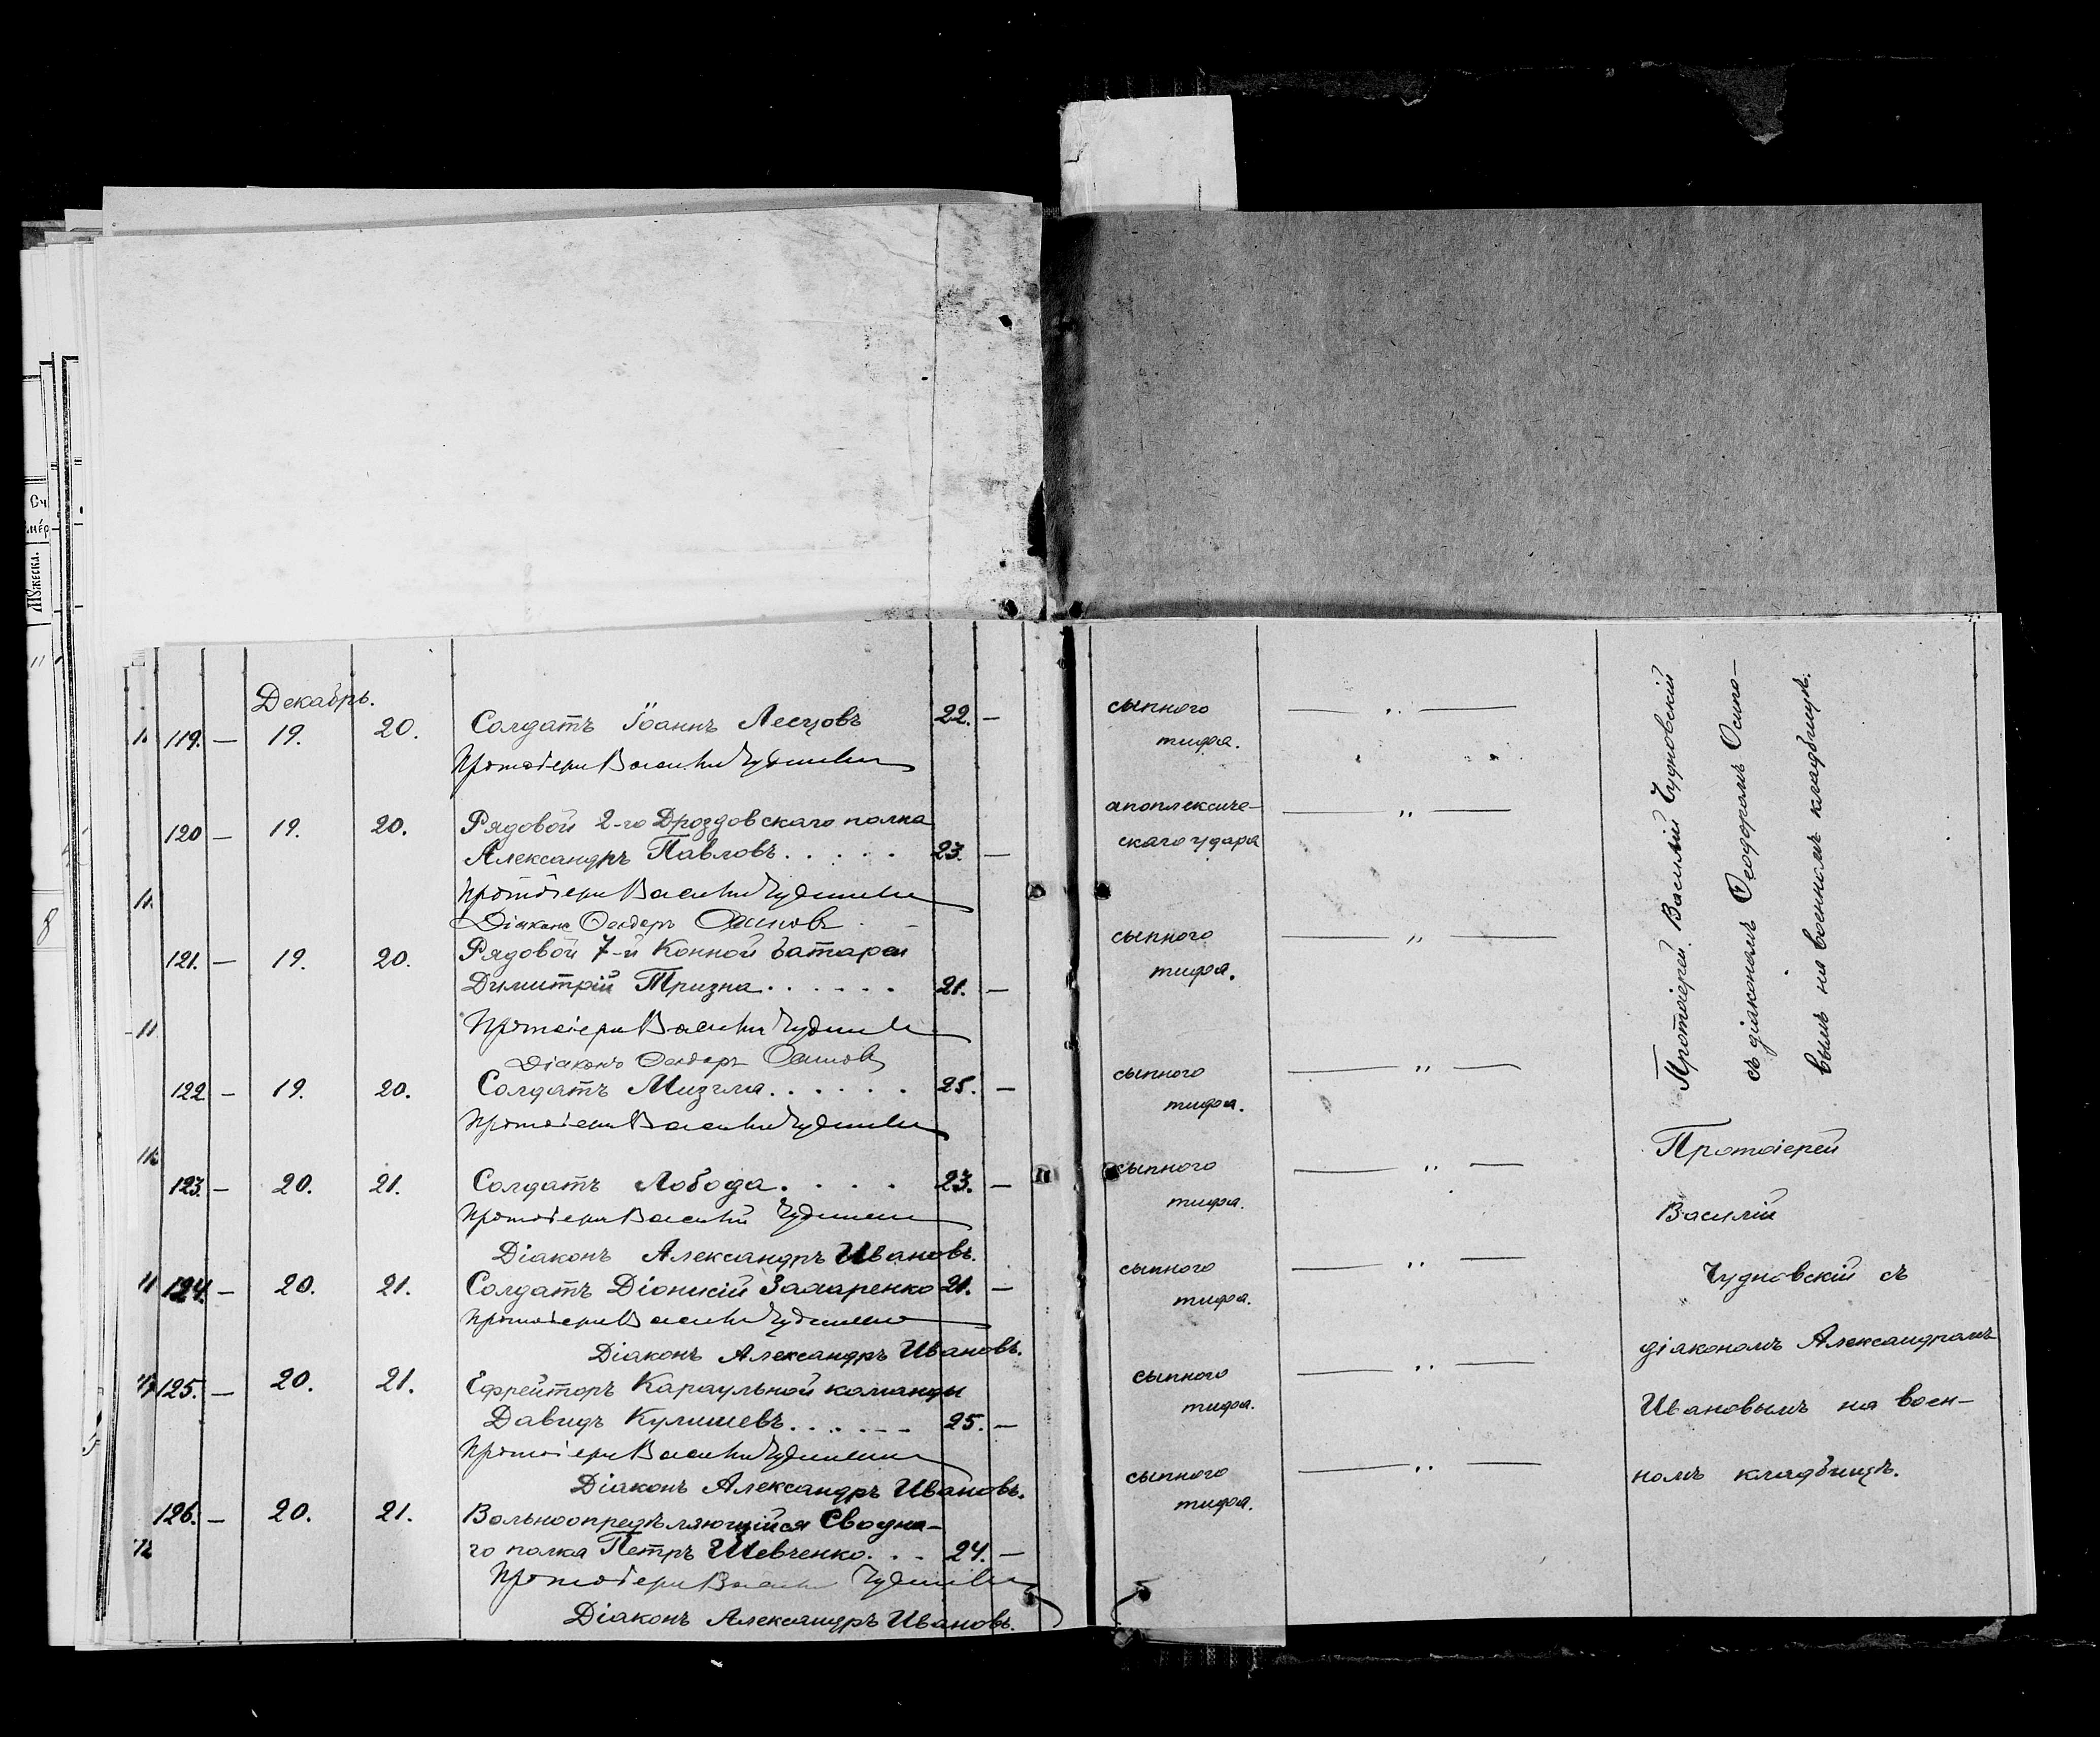 Сч
мѐр
Мꙋжеска.
Декабрь.
119. — 19. 20. Солдатъ Іоаннъ Лесцовъ 22. — сыпного — „ —
тифа.
Протоіерей Василій Чудновскій
120 — 19. 20. Рядовой 2-го Дроздовскаго полка апоплексиче- — „ —
Александръ Павловъ. . . . . 23. — скаго удара
Протоіерей Василій Чудновскій
Діаконъ Ѳеодоръ Осиповъ
121. — 19. 20. Рядовой 7-й Конной батареи сыпного — „ —
Димитрій Тризна. . . . . . 21. — тифа.
Протоіерей Василій Чудновскій
Діаконъ Ѳеодоръ Осиповъ
122 — 19. 20. Солдатъ Мизгла. . . . . . 25. — сыпного — „ —
тифа.
Протоіерей Василій Чудновскій
123. — 20. 21. Солдатъ Лобода. . . . . 23. — сыпного — „ —
тифа.
Протоіерей Василій Чудновскій
Діаконъ Александръ Ивановъ.
124. — 20. 21. Солдатъ Діонисій Замаренко 21. — сыпного — „ —
тифа.
Протоіерей Василій Чудновскій
Діаконъ Александръ Ивановъ.
125. — 20. 21. Ефрейторъ Караульной команды сыпного — „ —
Давидъ Кулишевъ. . . . . . 25. — тифа.
Протоіерей Василій Чудновскій
Діаконъ Александръ Ивановъ.
126. — 20. 21. Вольноопредѣляющійся Сводна- сыпного — „ —
го полка Петръ Шевченко. . . 24. — тифа.
Протоіерей Василій Чудновскій
Діаконъ Александръ Ивановъ.
Протоіерей Василій Чудновскій
съ діакономъ Ѳеодоромъ Осипо-
вымъ на военномъ кладбищѣ.
Протоіерей
Василій
Чудновскій съ
діакономъ Александромъ
Ивановымъ на воен-
номъ кладбищѣ.